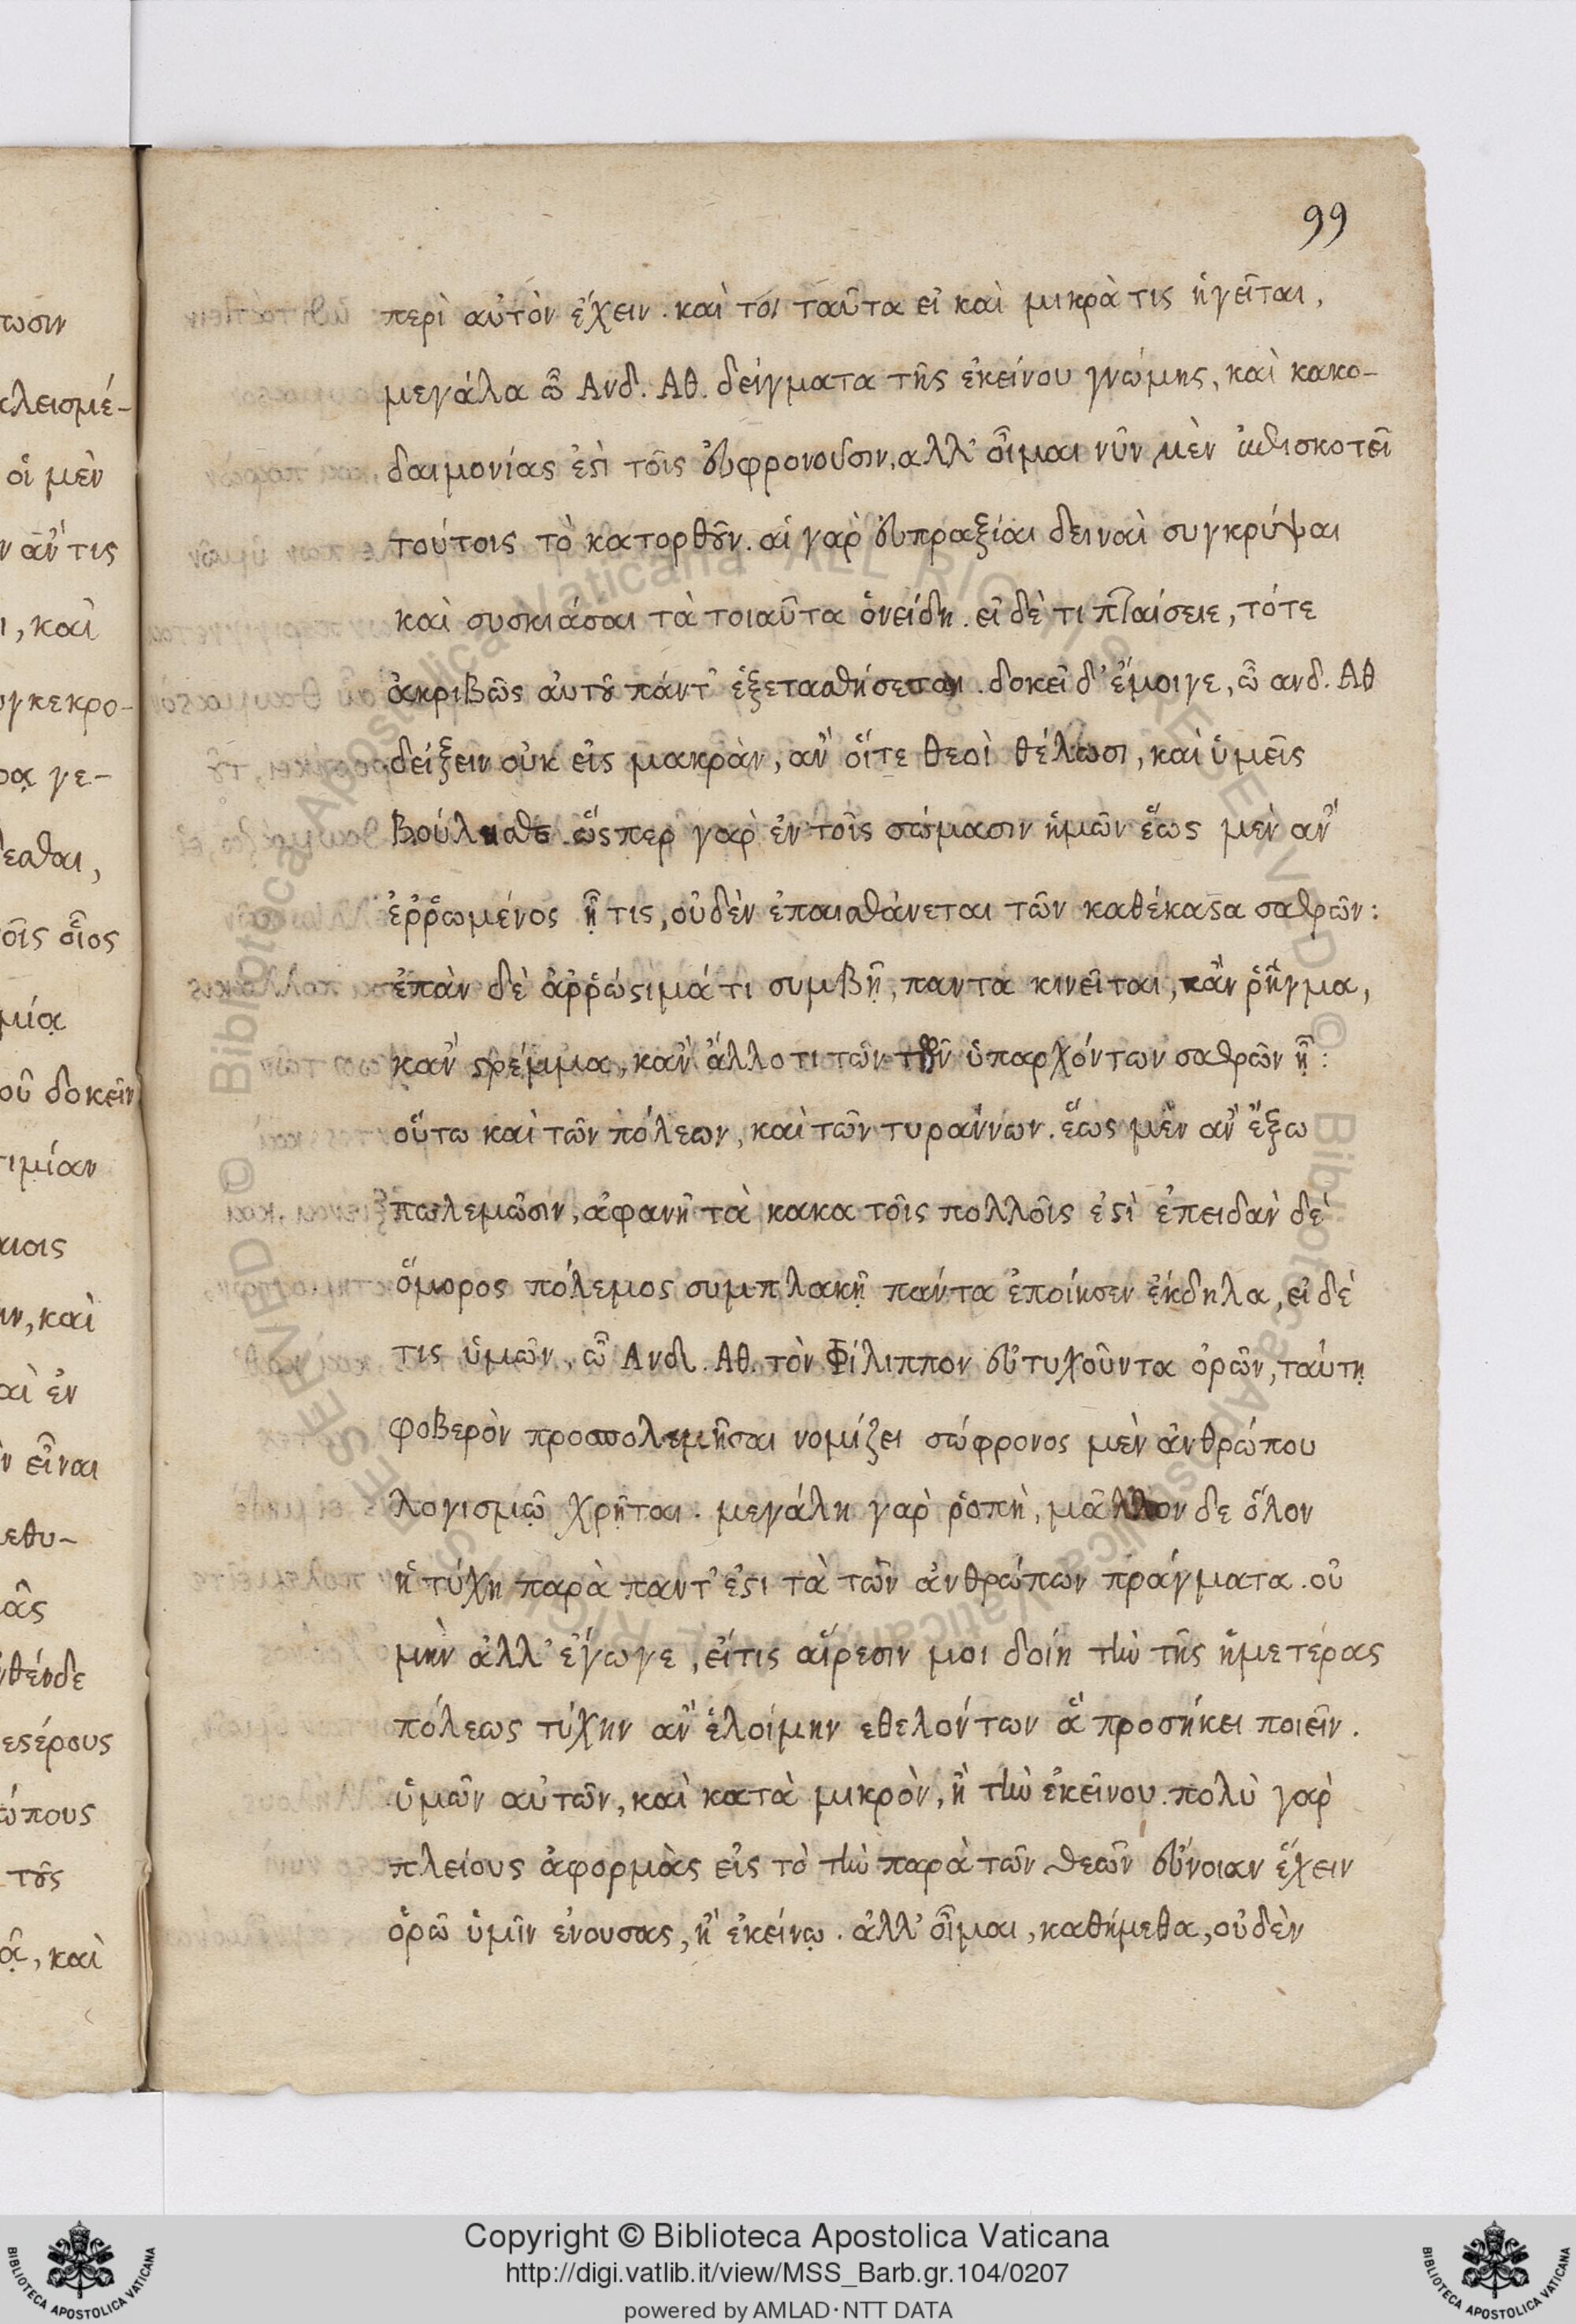 99
τωσιν
κλεισμέ-
οἱ μὲν
ν ἄν τις
ι, καὶ
υγκεκρο-
ρα γε-
δεσθαι,
τοῖς οἷος
μίᾳ
οῦ δοκεῖν
τιμίαν
αιοις
ιν, καὶ
αὶ ἐν
ν εἶναι
μεθυ-
μᾶς
νθένδε
εστέρους
ώπους
τοὺς
ᾷ, καὶ
περὶ αὐτὸν ἔχειν. καὶ τοι ταῦτα εἰ καὶ μικρὰ τις ἡγεῖται,
μεγάλα ὦ Ανδ. Αθ. δείγματα τῆς ἐκείνου γνώμης, καὶ κακο-
δαιμονίας ἐστὶ τοῖς εὐφρονοῦσιν, αλλ' οἶμαι νῦν μὲν ἐπισκοτεῖ
τούτοις τὸ κατορθοῦν. αἱ γαρ εὐπραξίαι δειναὶ συγκρύψαι
καὶ συσκιάσαι τὰ τοιαῦτα ὀνείδη. εἰ δὲ τι πταίσειε, τότε
ἀκριβῶς αὐτοῦ πάντ' ἐξετασθήσεται. δοκεῖ δ' ἔμοιγε, ὦ ανδ. Αθ
δείξειν οὐκ εἰς μακρὰν, ἂν οἵτε θεοὶ θέλωσι, καὶ ὑμεῖς
βούλησθε. ὥσπερ γαρ ἐν τοῖς σώμασιν ἡμῶν ἕως μὲν ἂν
ἐῤῥωμένος ᾖ τις, οὐδὲν ἐπαισθάνεται τῶν καθέκαστα σαθρῶν:
ἐπὰν δὲ ἀῤῥώστημά τι συμβῇ, παντα κινεῖται, κἂν ῥῆγμα,
κἂν στρέμμα, κἂν ἄλλο τι τῶν ὑπαρχόντων σαθρῶν ᾖ:
οὕτω καὶ τῶν πόλεων, καὶ τῶν τυραννων. ἕως μὲν ἂν ἔξω
πολεμῶσιν, ἀφανῆ τὰ κακα τοῖς πολλοῖς ἐστὶ ἐπειδαν δὲ
ὅμορος πόλεμος συμπλακῇ παντα ἐποίησεν ἔκδηλα, εἰ δέ
τις ὑμῶν, ὦ Ανδ. Αθ. τὸν Φίλιππον εὐτυχοῦντα ὁρῶν, ταύτῃ
φοβερὸν προσπολεμῆσαι νομίζει σώφρονος μὲν ἀνθρώπου
λογισμῷ χρῆται. μεγάλη γαρ ῥοπὴ, μᾶλλον δε ὅλον
ἡ τύχη παρὰ παντ' ἐστι τὰ τῶν ἀνθρώπων πράγματα. οὐ
μὴν ἀλλ' ἔγωγε, εἴτις αἵρεσιν μοι δοίη τὴν τῆς ἡμετέρας
πόλεως τύχην ἂν ἑλοίμην εθελόντων ἃ προσήκει ποιεῖν.
ὑμῶν αὐτῶν, καὶ κατὰ μικρὸν, ἢ τὴν ἐκεῖνου. πολὺ γαρ
πλείους ἀφορμὰς εἰς τὸ τὴν παρὰ τῶν θεῶν εὔνοιαν ἔχειν
ὁρῶ ὑμῖν ἐνουσας, ἢ ἐκείνῳ. ἀλλ' οἶμαι, καθήμεθα, οὐδὲν
Copyright © Biblioteca Apostolica Vaticana
http://digi.vatlib.it/view/MSS_Barb.gr.104/0207
powered by AMLAD·NTT DATA
BIBLIOTECA APOSTOLICA VATICANA
BIBLIOTECA APOSTOLICA VATICANA